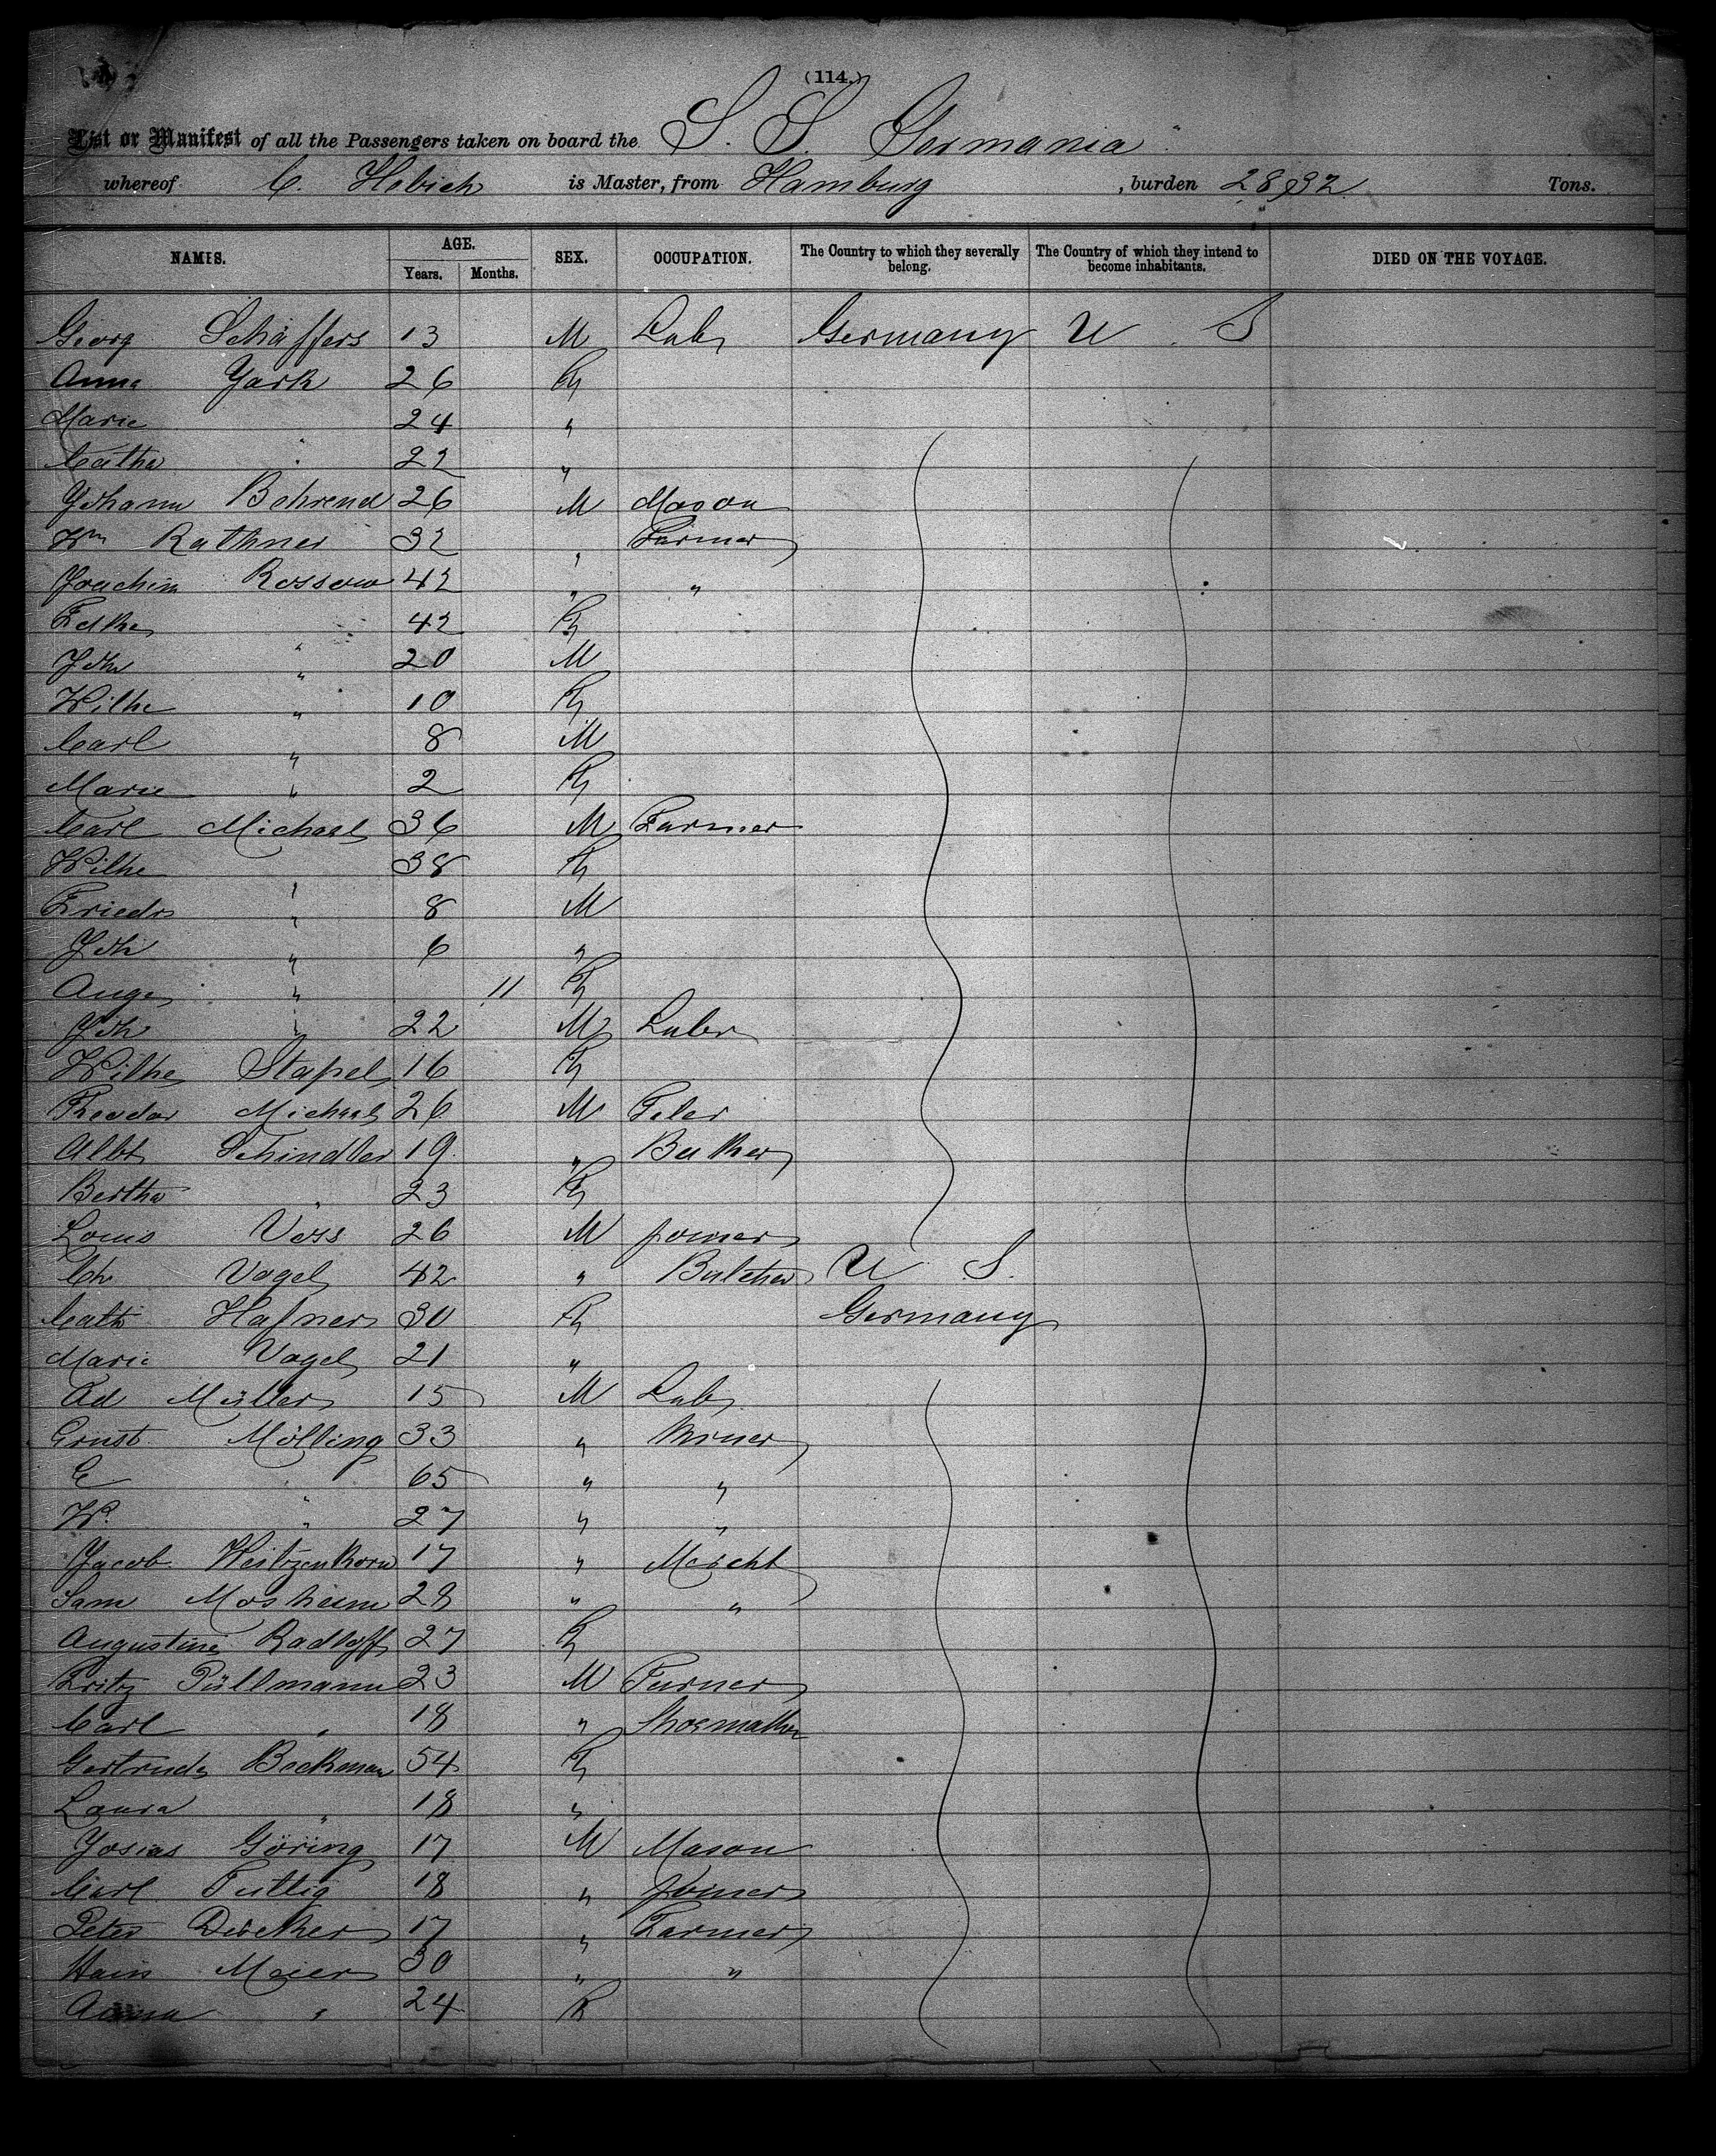 (114.)
List or Manifest of all the Passengers taken on board the S. S. Germania
whereof C. Hebich is Master, from Hamburg, burden 2892 Tons.
NAMES. AGE. Years. Months. SEX. OCCUPATION. The Country to which they severally belong. The Country of which they intend to become inhabitants. DIED ON THE VOYAGE.
Georg Schäffers 13 M Labr Germany U S
Anna York 26 F
Marie 24 "
Cathe " 22 "
Johann Behrend 26 M Mason
Wm Rathner 32 " Farmer
Joachim Rossow 42 " "
Fdke " 42 F
Joh " 20 M
Wilhe " 10 F
Carl " 8 M
Marie " 2 F
Carl Michaels 36 M Farmer
Wilhe " 38 F
Friedr " 8 M
Joh " 6 "
Auge " 11 F
Joh " 22 M Labr
Wilhe Stapel 16 F
Theodor Michaels 26 M
Albt Schindler 19 "
Bertha " 23 F
Louis Voss 26 M Joiner
Ch Vogel 42 " Butcher U S.
Cath Hafner 30 F Germany
Marie Vogel 21 "
Ad Müller 15 M Labr
Ernst Mölling 33 "
E " 65 " "
W. " 27 " "
Jacob Weitzenkorn 17 " Mercht
Sam Mosheim 28 " "
Augustine Radloff 27 F
Fritz Püllmann 23 M Turner
Carl " 18 " Shoemaker
Gertrude Beckman 54 F
Laura " 18 "
Josias Göring 17 M Mason
Carl Tuttig 18 " Joiner
Peter Decker 17 " Farmer
Hein Meier 30 " "
Anna " 24 F